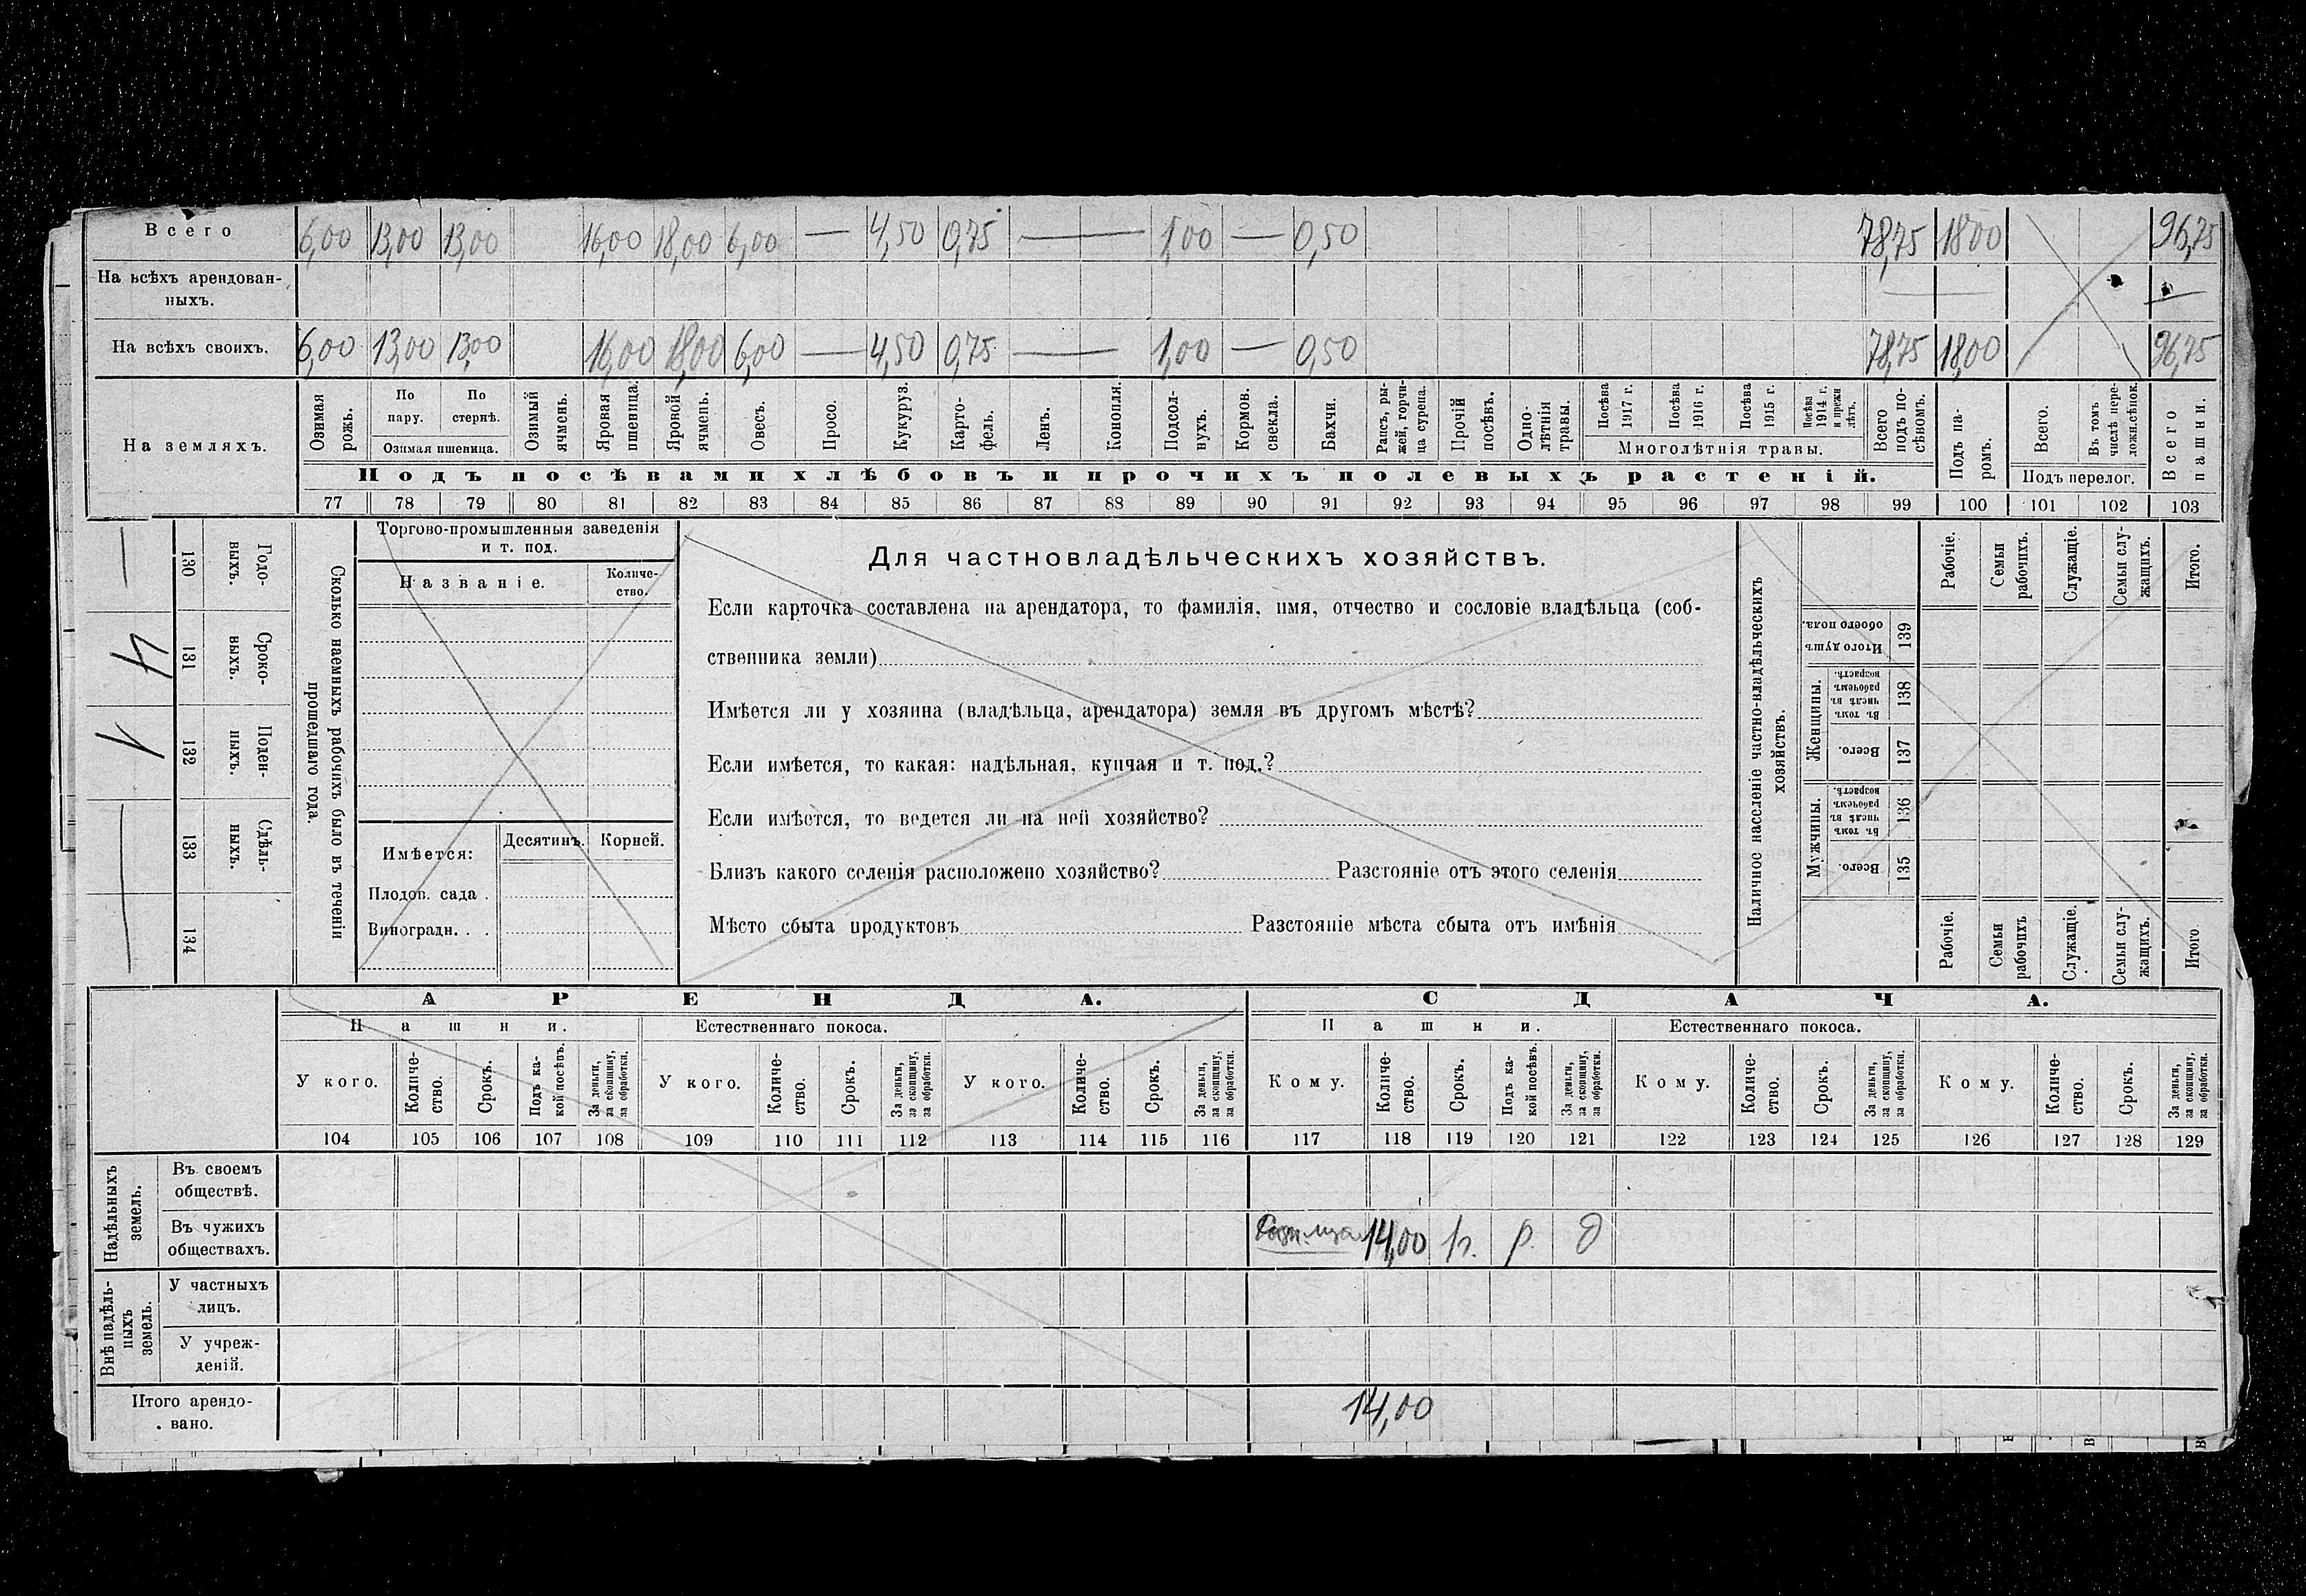 Всего 6,00 13,00 13,00 16,00 18,00 6,00 — 4,50 0,75 — 1,00 — 0,50 78,75 18,00 96,75
На всѣхъ арендован-
ныхъ. — —
На всѣхъ своихъ. 6,00 13,00 13,00 16,00 18,00 6,00 — 4,50 0,75 — 1,00 — 0,50 78,75 18,00 96,75
На земляхъ.
Озимая рожь.
По пару.
По стернѣ.
Озимая пшеница.
Озимый ячмень.
Яровая пшеница.
Яровой ячмень.
Овесъ.
Просо.
Кукуруз.
Карто-
фель.
Ленъ.
Конопля.
Подсол-
нухъ.
Кормов.
свекла.
Бахчи.
Рапсъ, ры-
жей, горчи-
ца сурепа.
Прочій
посѣвъ.
Одно-
лѣтнія
травы.
Посѣва
1917 г.
Посѣва
1916 г.
Посѣва
1915 г.
Посѣва
1914 г.
и прежн
лѣтъ.
Многолѣтнія травы.
Всего
подъ по-
сѣвомъ.
Подъ па-
ромъ.
Всего.
Въ томъ
числѣ пере-
ложн.сѣнок.
Подъ перелог.
Всего
пашни.
Подъ посѣвами хлѣбовъ и прочихъ полевыхъ растеній.
77 78 79 80 81 82 83 84 85 86 87 88 89 90 91 92 93 94 95 96 97 98 99 100 101 102 103
Сколько наемныхъ рабочихъ было въ теченіи
прошедшаго года.
Годо-
выхъ.
130 —
Сроко-
выхъ.
131 4
Поден-
ныхъ.
132 1
Сдѣль-
ныхъ.
133
134
Торгово-промышленныя заведенія
и т. под.
Названіе.
Количе-
ство.
Имѣется: Десятинъ. Корней.
Плодов. сада .
Виноградн. . .
Для частновладѣльческихъ хозяйствъ.
Если карточка составлена на арендатора, то фамилія, имя, отчество и сословіе владѣльца (соб-
ственника земли)
Имѣется ли у хозяина (владѣльца, арендатора) земля въ другомъ мѣстѣ?
Если имѣется, то какая: надѣльная, купчая и т. под.?
Если имѣется, то ведется ли на ней хозяйство?
Близъ какого селенія расположено хозяйство? Разстояніе отъ этого селенія
Мѣсто сбыта продуктовъ Разстояніе мѣста сбыта отъ имѣнія
Наличное населеніе частно-владѣльческихъ
хозяйствъ.
Итого душъ
обоего пола.
139
Женщины.
Въ томъ
числѣ въ
рабочемъ
возрастѣ.
138
Всего.
137
Мужчины.
Въ томъ
числѣ въ
рабочемъ
возрастѣ.
136
Всего.
135
Рабочіе.
Семьи
рабочихъ.
Служащіе.
Семьи слу-
жащихъ.
Итого.
Рабочіе.
Семьи
рабочихъ
Служащіе.
Семьи слу-
жащихъ.
Итого.
АРЕНДА. СДАЧА.
Пашни. Естественнаго покоса. Пашни. Естественнаго покоса.
У кого.
Количе-
ство.
Срокъ.
Подъ ка-
кой посѣвъ.
За деньги,
за скопщину,
за обработки.
У кого.
Количе-
ство.
Срокъ.
За деньги,
за скопщину,
за обработки.
У кого.
Количе-
ство.
Срокъ.
За деньги,
за скопщину,
за обработки.
Кому.
Количе-
ство.
Срокъ.
Подъ ка-
кой посѣвъ.
За деньги,
за скопщину,
за обработки.
Кому.
Количе-
ство.
Срокъ.
За деньги,
за скопщину,
за обработки.
Кому.
Количе-
ство.
Срокъ.
За деньги,
за скопщину,
за обработки.
104 105 106 107 108 109 110 111 112 113 114 115 116 117 118 119 120 121 122 123 124 125 126 127 128 129
Надѣльныхъ
земель.
Въ своемъ
обществѣ.
Въ чужихъ
обществахъ. 14,00 р. д
Внѣ надѣль-
ныхъ
земель.
У частныхъ
лицъ.
У учреж-
деній.
Итого арендо-
вано. 14,00